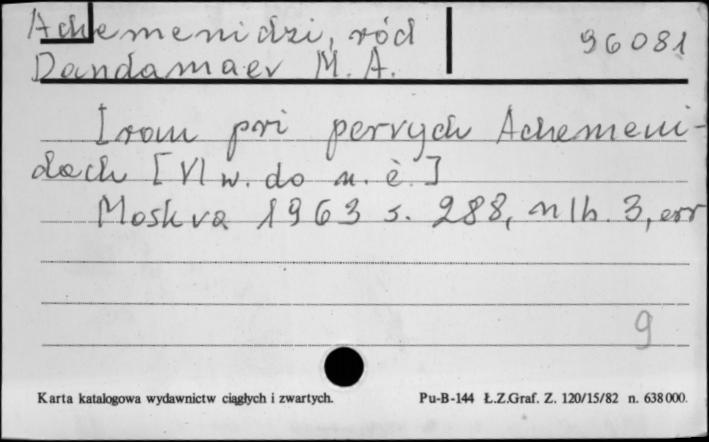 Achemenidzi, ród
96081
Dandamaev M. A.
Iran pri pervych Achemeni-
dach [VI w. do n. è.]
Moskva 1963 s. 288, nlb. 3, err
9
Karta katalogowa wydawnictw ciągłych i zwartych.
Pu-B-144 Ł.Z.Graf. Z. 120/15/82 n. 638000.